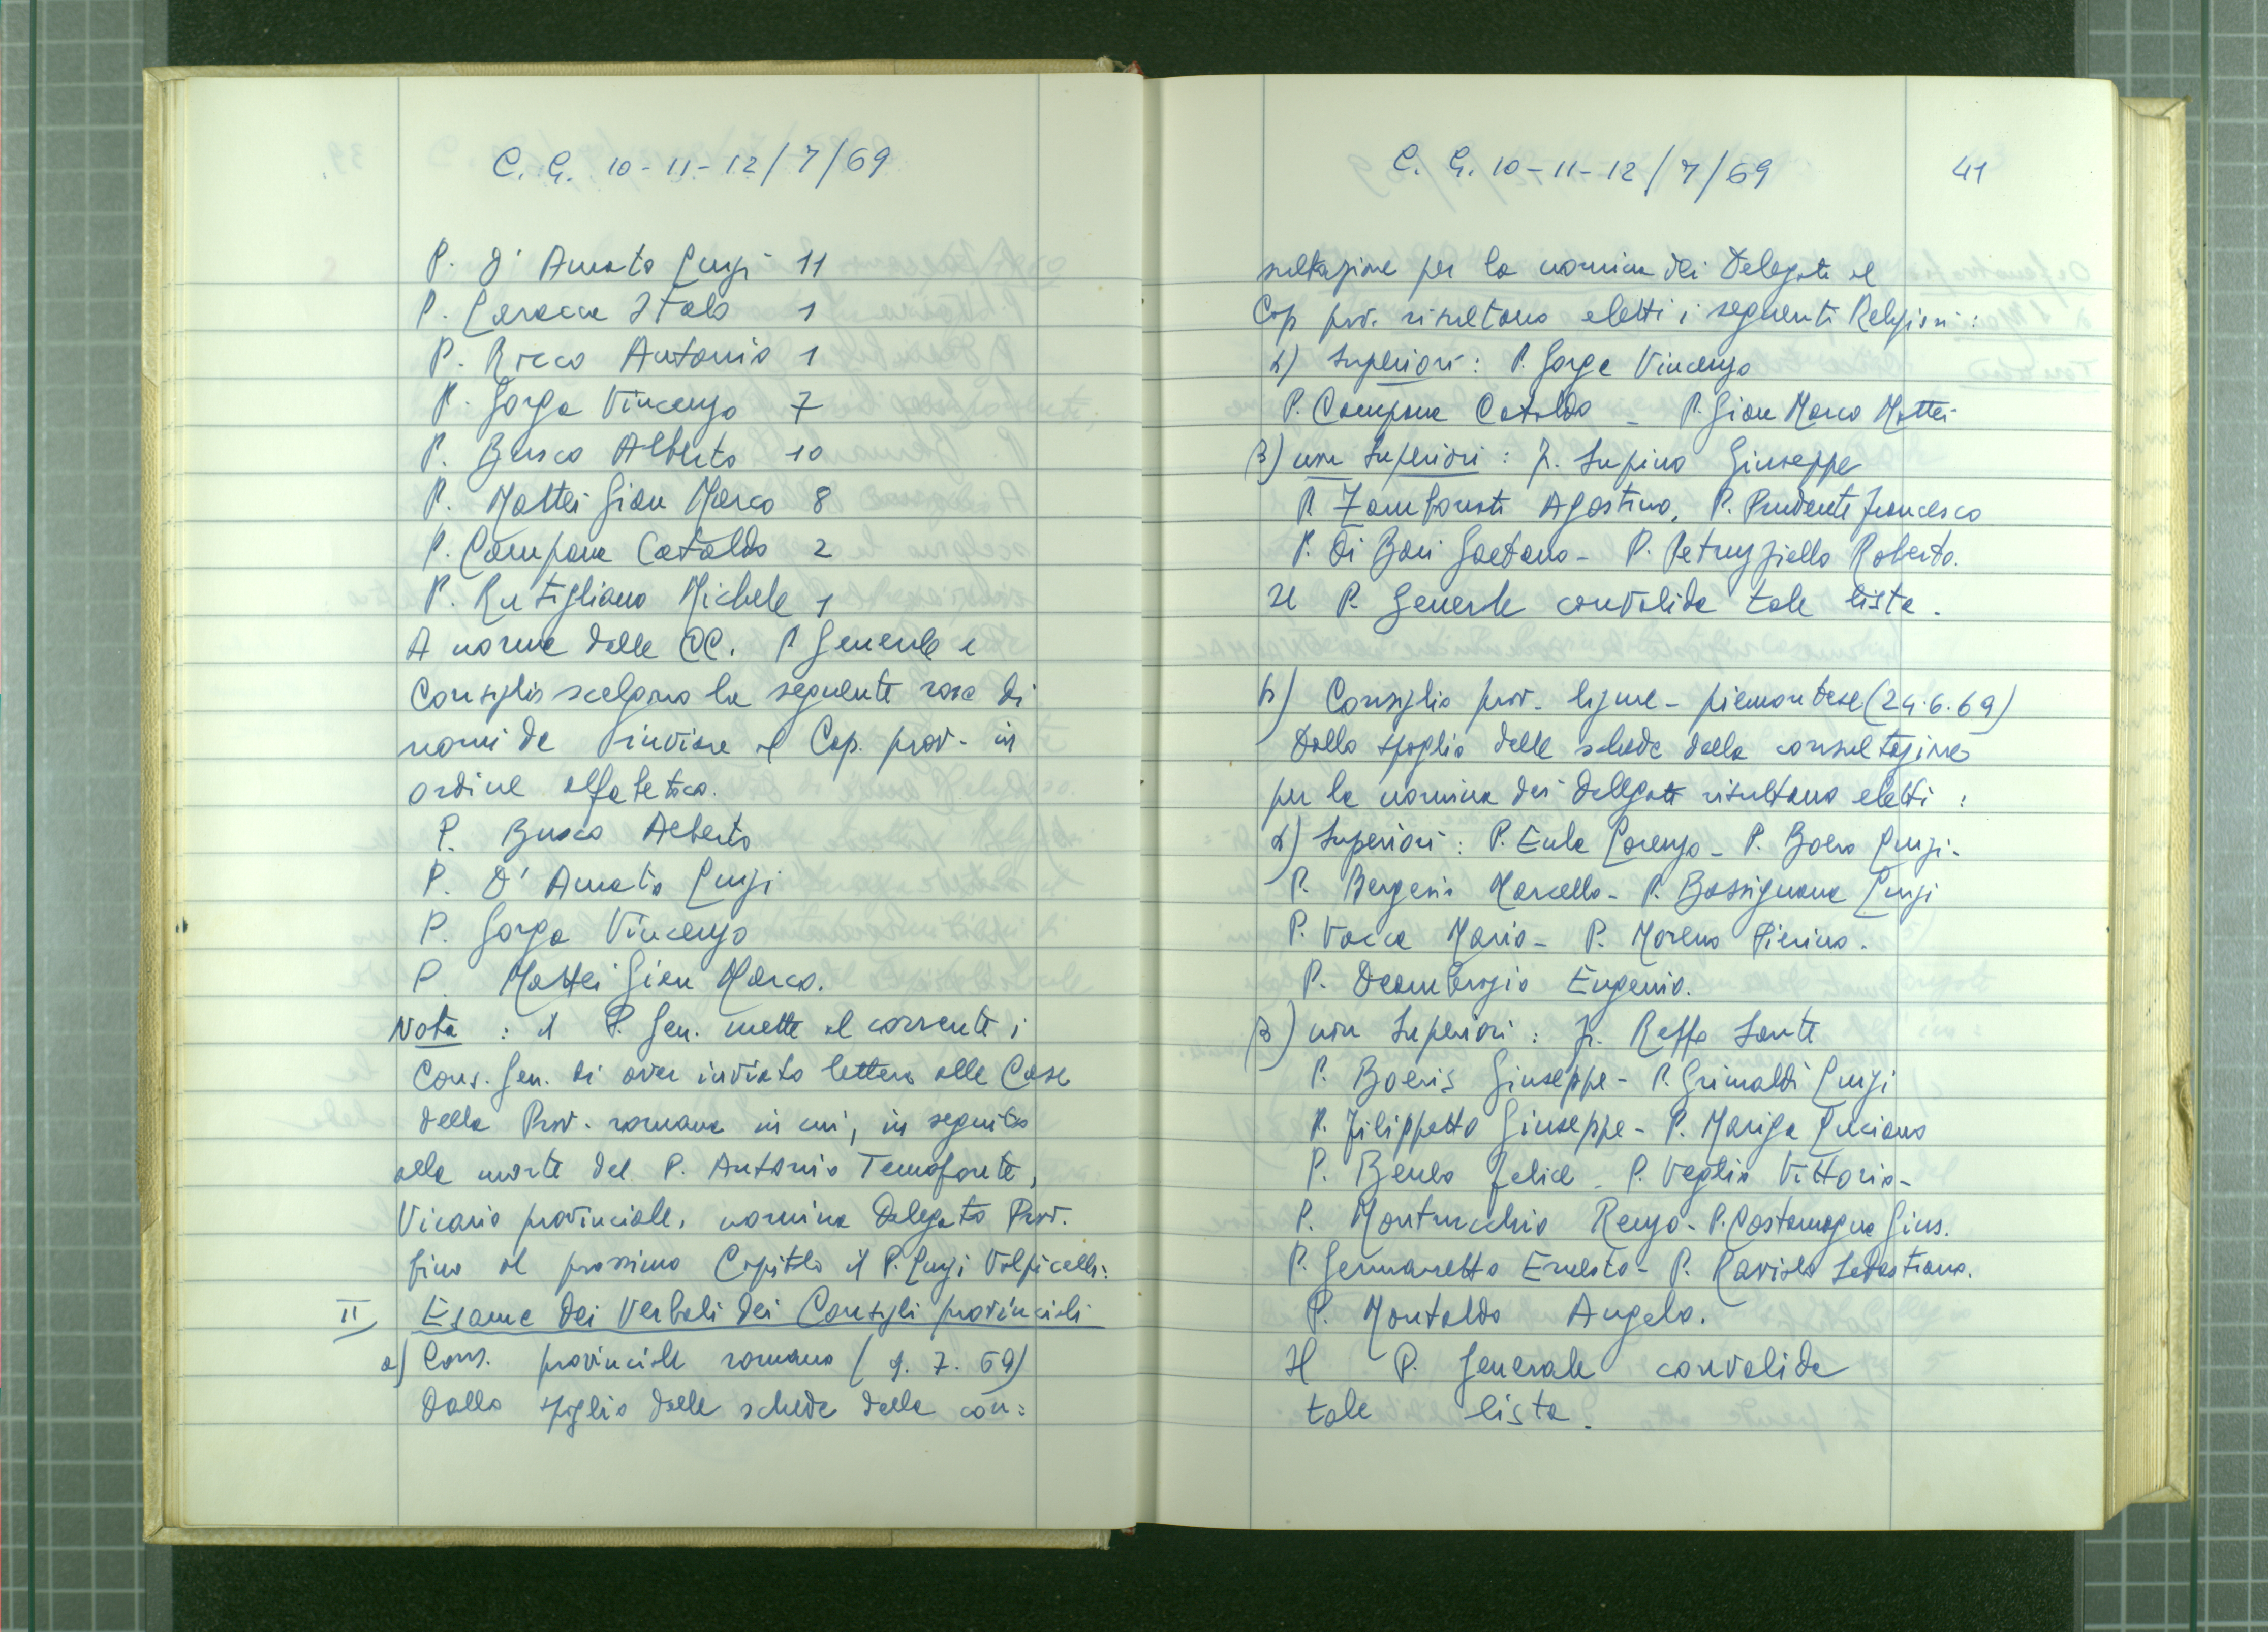 C. G. 10-11-12/7/69
P. D'Amato Luigi 11
P. Laracca Italo 1
P. Ricco Antonio 1
P. Gorga Vincenzo 7
P. Busco Alberto 10
P. Mattei Gian Marco 8
P. Campana Cataldo 2
P. Rutigliano Michele 1
A norma delle CC. P. Generale e
Consiglio scelgono la seguente rosa di
nomi da inviare al Cap. prov. in
ordine alfabetico.
P. Busco Alberto
P. D'Amato Luigi
P. Gorga Vincenzo
P. Mattei Gian Marco.
Nota : il P. Gen. mette al corrente i
Cons. Gen. di aver inviato lettera alle Case
della Prov. romana in cui, in seguito
alla morte del P. Antonio Temofonte,
Vicario provinciale, nomina Delegato Prov.
fino al prossimo Capitolo il P. Luigi Volpicelli.
II Esame dei Verbali dei Consigli provinciali
a) Cons. provinciale romano ( 9. 7. 69)
Dallo spoglio delle schede della con=
C. G. 10-11-12/7/69 41
sultazione per la nomina dei Delegati al
Cap prov. risultano eletti i seguenti Religiosi :
α) Superiori : P. Gorga Vincenzo
P. Campana Cataldo - P. Gian Marco Mattei
β) non Superiori : fr. Supino Giuseppe
P. Zambonati Agostino, P. Prudente Francesco
P. Di Bari Gaetano - P. Petruzziello Roberto.
Il P. Generale convalida tale lista.
b) Consiglio prov. ligure - piemontese (24.6.69)
Dallo spoglio delle schede della consultazione
per la nomina dei Delegati risultano eletti :
α) Superiori : P. Eula Lorenzo - P. Boero Luigi -
P. Bergesio Marcello - P. Bassignana Luigi
P. Vacca Mario - P. Moreno Pierino.
P. Deambrogio Eugenio.
β) non Superiori : fr. Raffa Sante
P. Boeris Giuseppe - P. Grimaldi Luigi
P. Filippetto Giuseppe - P. Mariga Luciano
P. Beneo Felice - P. Veglio Vittorio -
P. Montrucchio Renzo - P. Costamagna Gius.
P. Gennaretto Ernesto - P. Raviolo Sebastiano.
P. Montaldo Angelo.
Il P. Generale convalida
tale lista.